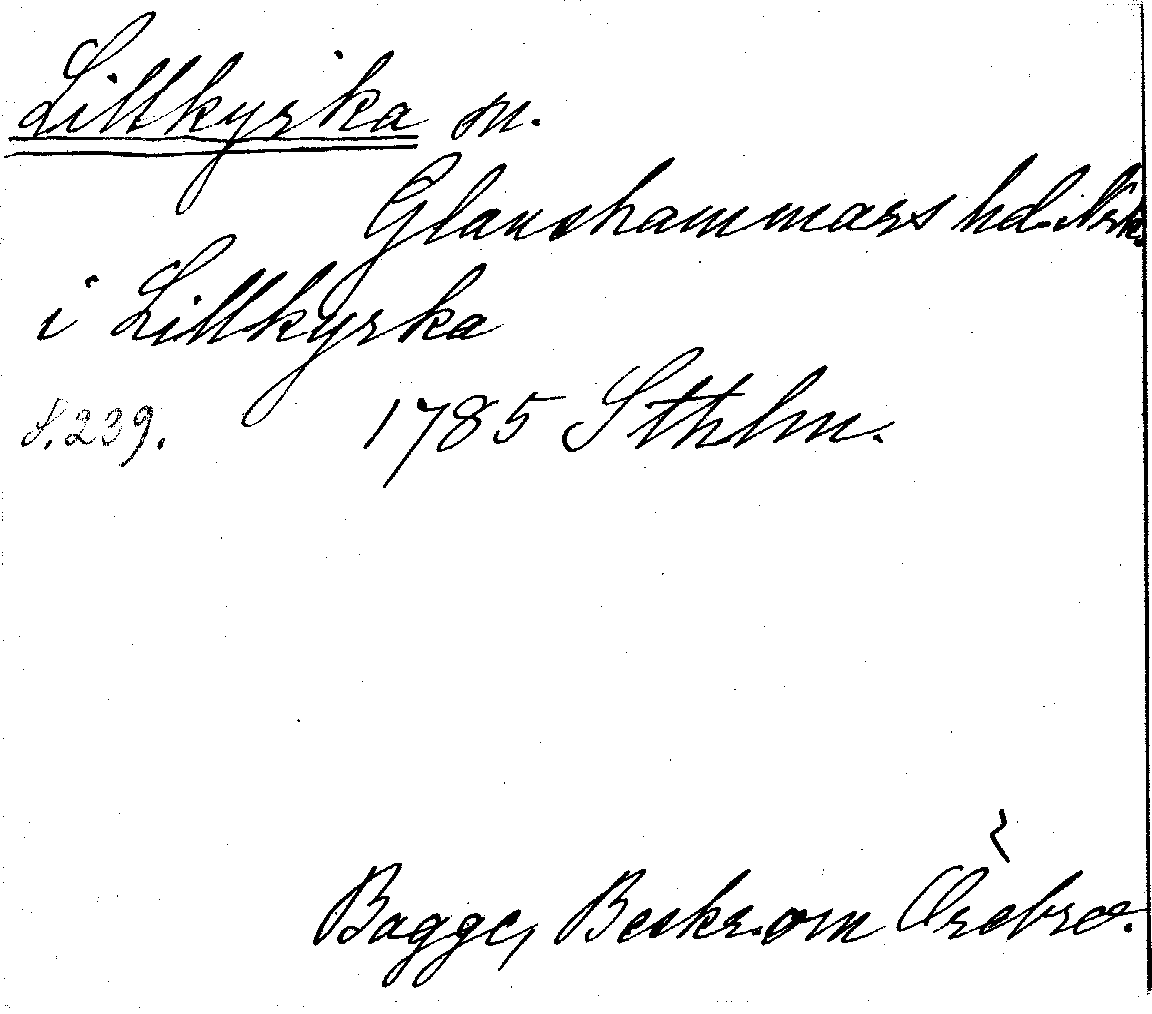 Lillkyrka sn.
Glanshammars hd. Nrk.
i Lillkyrka
S. 239. 1785 Sthlm.
Bagge, Beskr. om Örebro.